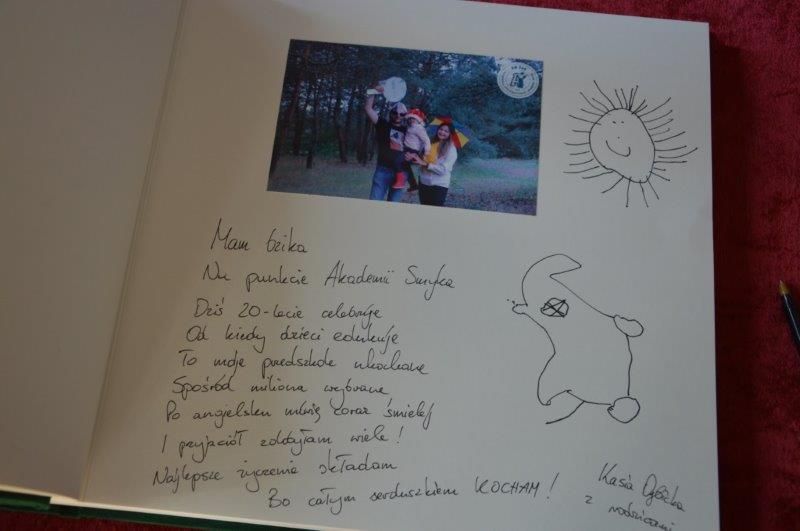 Mam bzika
Na punkcie Akademii Smyka
Dziś 20-lecie celebruje
Od kiedy dzieci edukuje
To moje przedszkole ukochane
Spośród miliona wybrane
Po angielsku mówię coraz śmielej
I przyjaciół zdobyłam wiele!
Najlepsze życzenia składam
Bo całym serduszkiem KOCHAM!
Kasia
z rodzicami